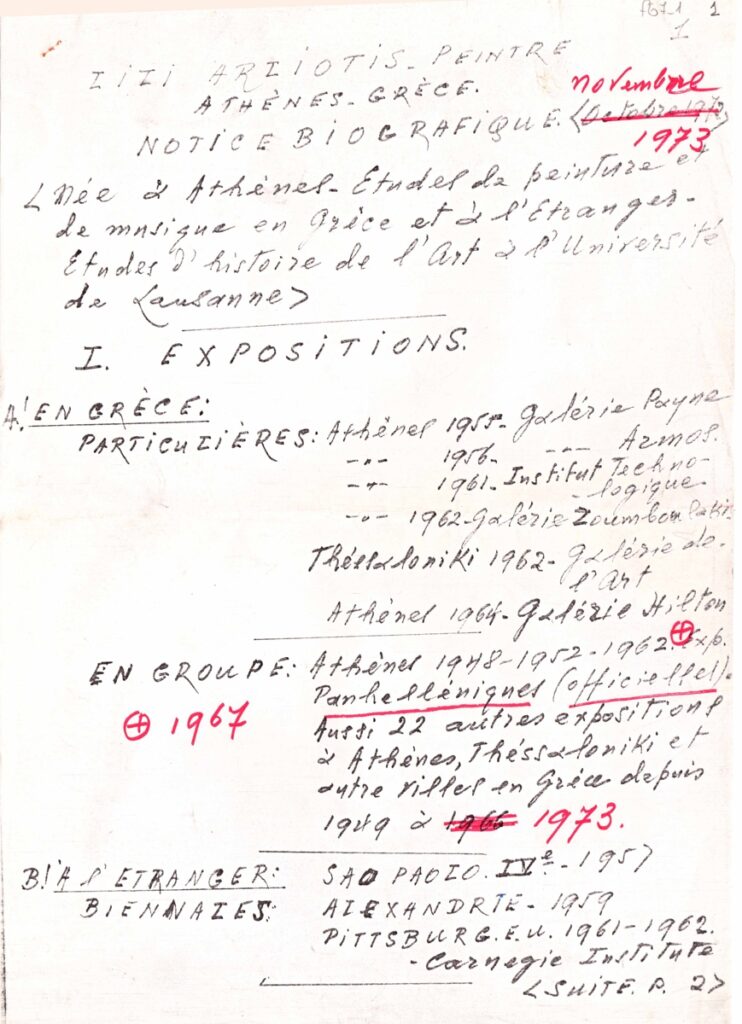 1
1
LiLi ARLIOTIS - PEINTRE
ATHÈNES - GRÈCE.
novembre
NOTICE BIOGRAFIQUE. <Octobre 1972>
1973
<Née à Athènes - Etudes de peinture et
de musique en Grèce et à l'Etranger -
Etudes d'histoire de l'Art à l'Université
de Lausanne>
I. EXPOSITIONS.
A! EN GRÈCE:
PARTICULIÈRES: Athènes 1955 - Galérie Payne
-"- 1956 - -"- Armos.
-"- 1961 - Institut Techno-
logique.
-"- 1962 - Galérie Zoumboulakis
Théssaloniki 1962 - Galérie de
l'Art
Athènes 1964 - Galérie Hilton
EN GROUPE: Athènes 1948-1952-1962. ⊕ Exp.
Panhelléniques (officielles).
⊕ 1967
Aussi 22 autres expositions
à Athènes, Théssaloniki et
autre villes en Grèce depuis
1949 à 1966 1973.
B! A l'ETRANGER: SAO PAOLO. IVe - 1957
BIENNALES: ALEXANDRIE - 1959
PITTSBURG. E.U. 1961-1962.
- Carnegie Institute
<SUITE. P. 2>